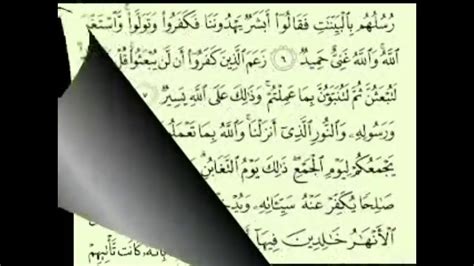 رُسُلُهُم بِٱلْبَيِّنَٰتِ فَقَالُوٓا۟ أَبَشَرٌ يَهْدُونَنَا فَكَفَرُوا۟ وَتَوَلَّوا۟ وَّٱسْتَغْنَ
ٱللَّهُ وَٱللَّهُ غَنِىٌّ حَمِيدٌ ٦ زَعَمَ ٱلَّذِينَ كَفَرُوٓا۟ أَن لَّن يُبْعَثُوا۟ قُلْ
لَتُبْعَثُنَّ ثُمَّ لَتُنَبَّؤُنَّ بِمَا عَمِلْتُمْ وَذَٰلِكَ عَلَى ٱللَّهِ يَسِيرٌ
وَرَسُولِهِۦ وَٱلنُّورِ ٱلَّذِىٓ أَنزَلْنَا وَٱللَّهُ بِمَا تَعْمَلُو
يَجْمَعُكُمْ لِيَوْمِ ٱلْجَمْعِ ذَٰلِكَ يَوْمُ ٱلتَّغَابُنِ
صَٰلِحًا يُكَفِّرْ عَنْهُ سَيِّـَٔاتِهِۦ وَيُدْخِ
ٱلْأَنْهَٰرُ خَٰلِدِينَ فِيهَآ
بِأَنَّهُۥ كَانَت تَّأْتِيهِمْ